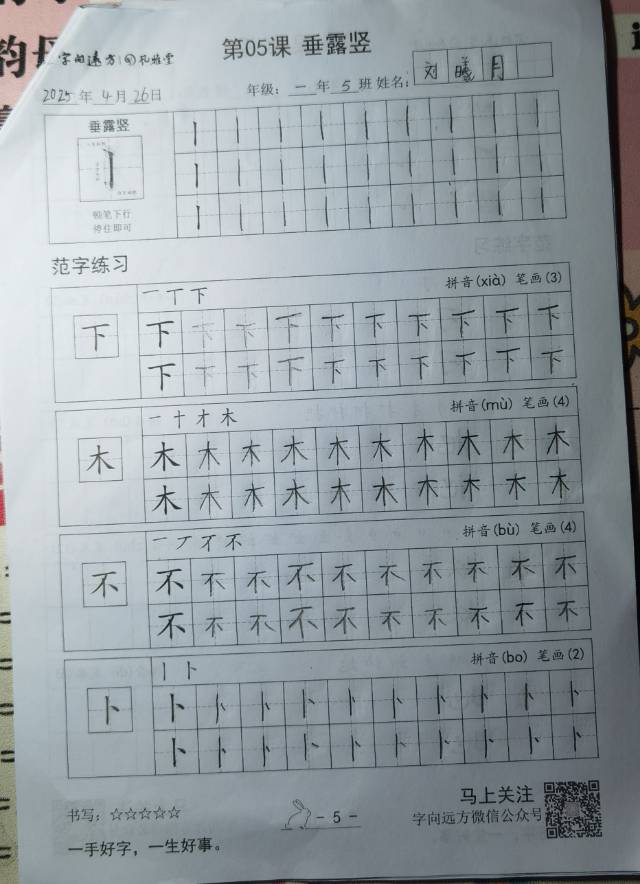 韵母
字向远方
第05课 垂露竖
刘曦月
2025年4月26日
年级：一年5班 姓名：
垂露竖
顿笔下行
停住即可
范字练习
一 丅 下
拼音(xià) 笔画(3)
下 下 下 下 下 下 下 下 下 下 下
下 下 下 下 下 下 下 下 下 下
一 十 才 木
拼音(mù) 笔画(4)
木 木 木 木 木 木 木 木 木 木 木
木 木 木 木 木 木 木 木 木 木
一 丆 不 不
拼音(bù) 笔画(4)
不 不 不 不 不 不 不 不 不 不 不
不 不 不 不 不 不 不 不 不 不
丨 卜
拼音(bo) 笔画(2)
卜 卜 卜 卜 卜 卜 卜 卜 卜 卜 卜
卜 卜 卜 卜 卜 卜 卜 卜 卜 卜
书写：☆☆☆☆☆
- 5 -
马上关注
字向远方微信公众号
一手好字，一生好事。